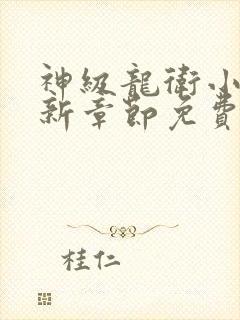 神級龍衛小
新章節免費
桂仁